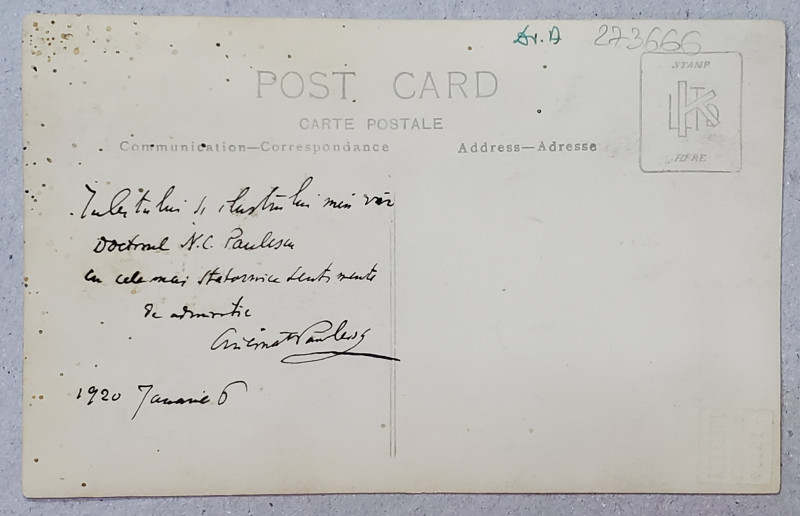 Dr. A 273666
POST CARD
CARTE POSTALE
Communication—Correspondance
Address—Adresse
STAMP
HERE
Iubitului si ilustrului meu văr
Doctorul N.C. Paulescu
cu cele mai statornice sentimente
de admiratie
Cincinat Pavelescu
1920 Januarie 6